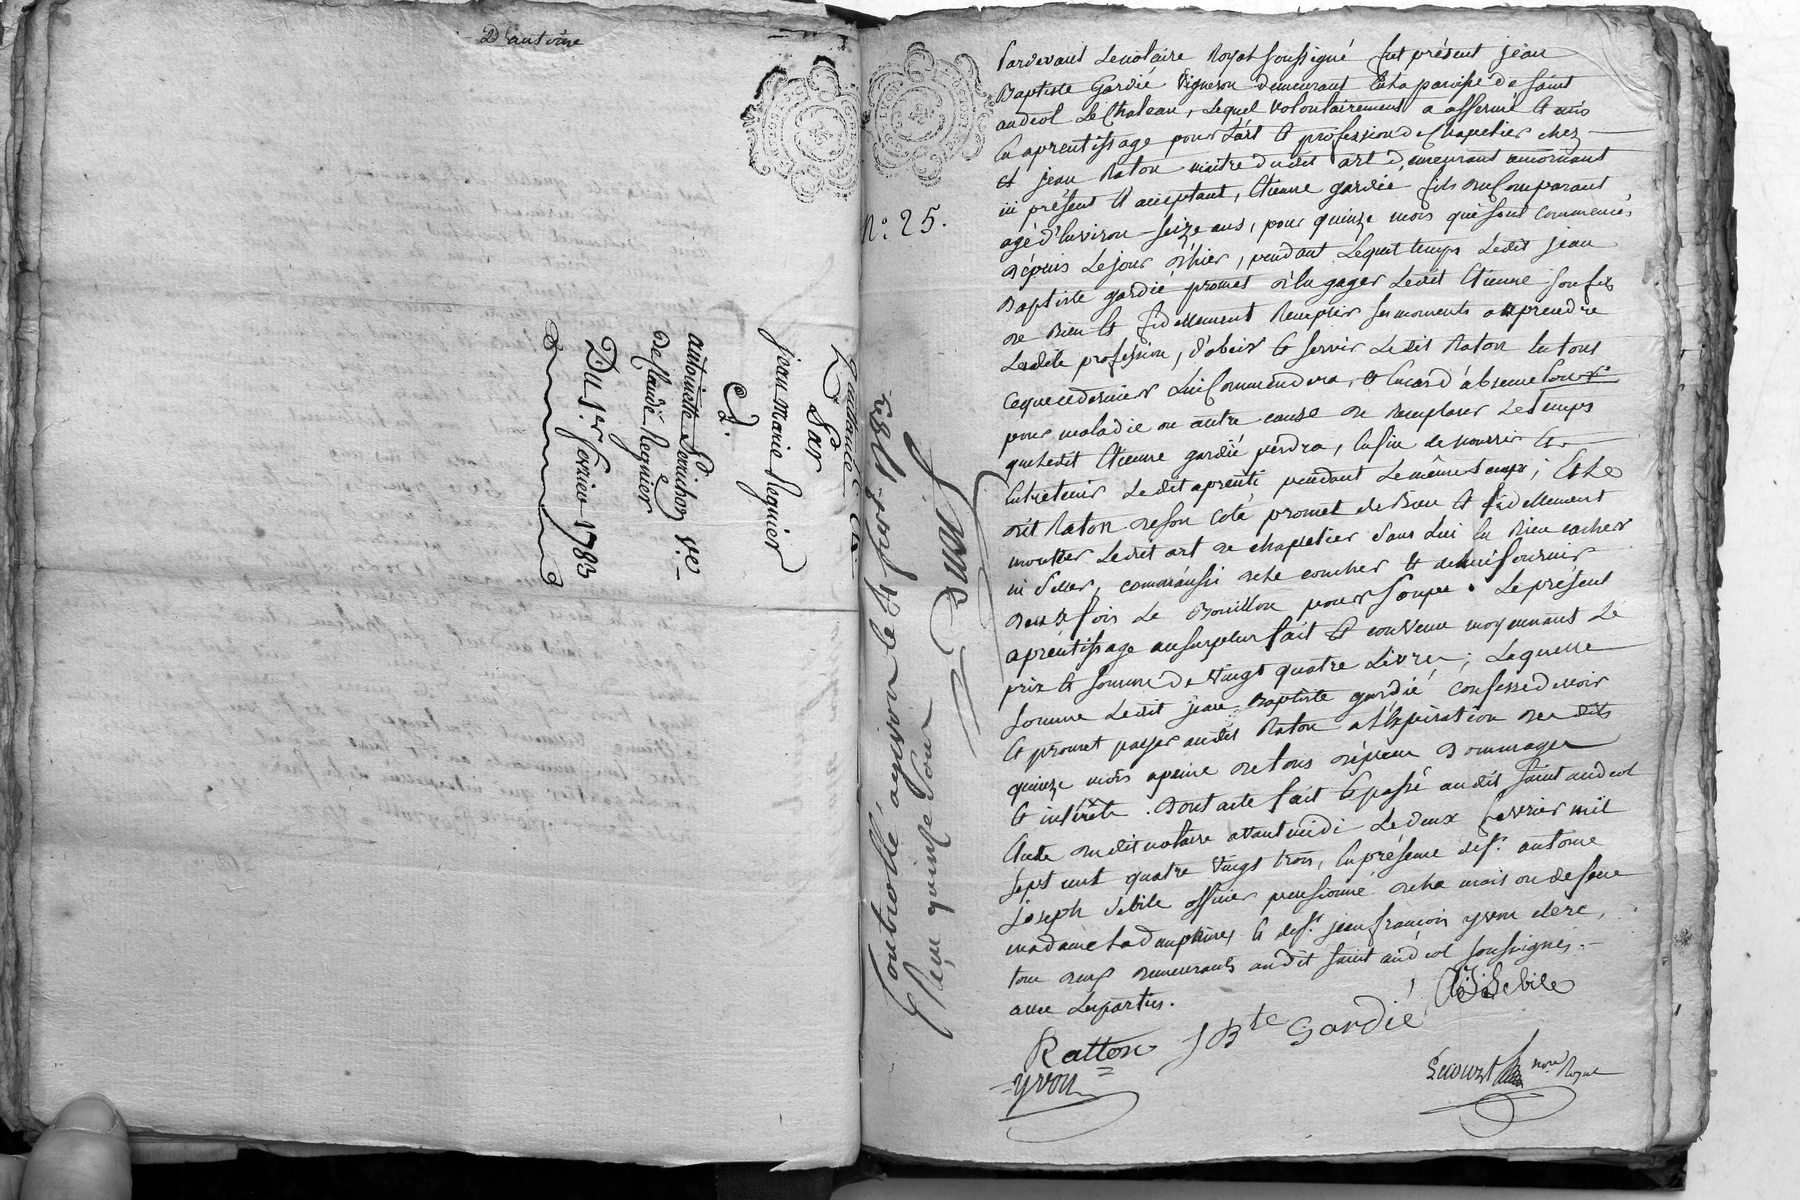 D'antoine
Quittance
Par
jean marie Requier
a
antoinette Perichon ve
De claude Requier
Du 1er fevrier 1783
N.o 25.
Controllé a givors le 4 fevr 1783
Reçu quinze sous
Pardevant Le notaire Royal soussigné fut présent jean
Baptiste Gardié Vigneron demeurant En la paroisse de saint
andeol Le Chateau, Lequel volontairement a affermé et mis
En aprentissage pour L'art et profession de Chapelier chez
et jean Raton maitre dudit art demeurant a mornant
ici présent et acceptant, Etienne gardié fils du Comparant
agé d'Environ seize ans, pour quinze mois qui sont commencés
dépuis Le jour d'hier, pendant Lequel temps Ledit jean
Baptiste gardié promet d'En gager Ledit Etienne son fils
de Bien et fidellement Remplir ses moments a apprendre
Ladite profession, d'obeir et servir Ledit Raton En tout
ce que ce dernier Lui Commendera, et En cas d'absence
pour maladie ou autre cause de Remplacer Le temps
que Ledit Etienne gardié perdra, Enfin de nourrir et
Entretenir Ledit aprenti pendant Le même temps; Et Le
dit Raton de son Coté promet de Bien et fidellement
montrer Ledit art de chapelier sans Lui En Rien cacher
ni Seller, comme aussi de Le coucher et de lui fournir
deux fois Le Bouillon pour soupe. Le présent
aprentissage au surplus fait et convenu moyennant Le
prix et somme de Vingt quatre Livres; Laquelle
somme Ledit jean Baptiste gardié confesse devoir
et promet payer audit Raton a L'Expiration des dits
quinze mois a peine de tous dépens Dommages
et intérêts. Dont acte fait et passé audit saint andeol
Etude dudit notaire avant midi Le deux fevrier mil
sept cent quatre Vingt trois, En présence de sr. antoine
joseph Sebile officier pensionné de La maison de feue
madame La dauphine, et de sr. jean françois yvon clerc,
tous deux demeurants audit saint andeol soussignés
avec Les parties.
A J Sebile
Ratton J Bte Gardié
yvon
nore Royal